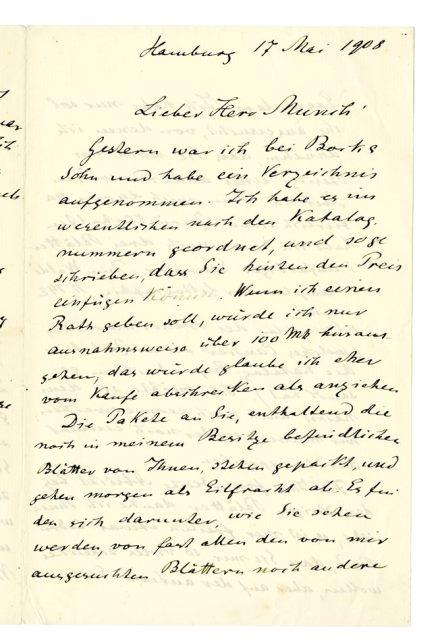 Hamburg 17 Mai 1908
Lieber Herr Munch!
Gestern war ich bei Bock &
Sohn und habe ein Verzeichnis
aufgenommen. Ich habe es im
wesentlichen nach den Katalog
nummern geordnet, und so ge
schrieben, dass Sie hinten den Preis
einfügen können. Wenn ich einen
Rath geben soll, würde ich nur
ausnahmsweise über 100 Mk hinaus
gehen, das würde glaube ich eher
vom Kaufe abschrecken als anziehen
Die Pakete an Sie, enthaltend die
noch in meinem Besitze befindlichen
Blätter von Ihnen, stehen gepackt, und
gehen morgen als Eilfracht ab. Es fin
den sich darunter, wie Sie sehen
werden, von fast allen den von mir
ausgesuchten Blättern noch andere